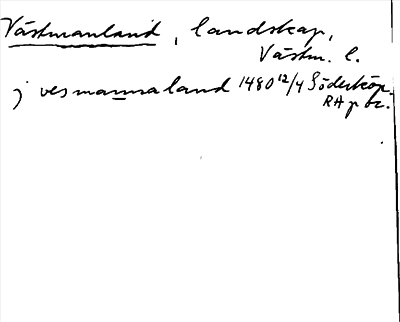 Västmanland, landskap,
Västm. l.
j vesmannaland 1480 12/4 Söderköp.
RA p br.